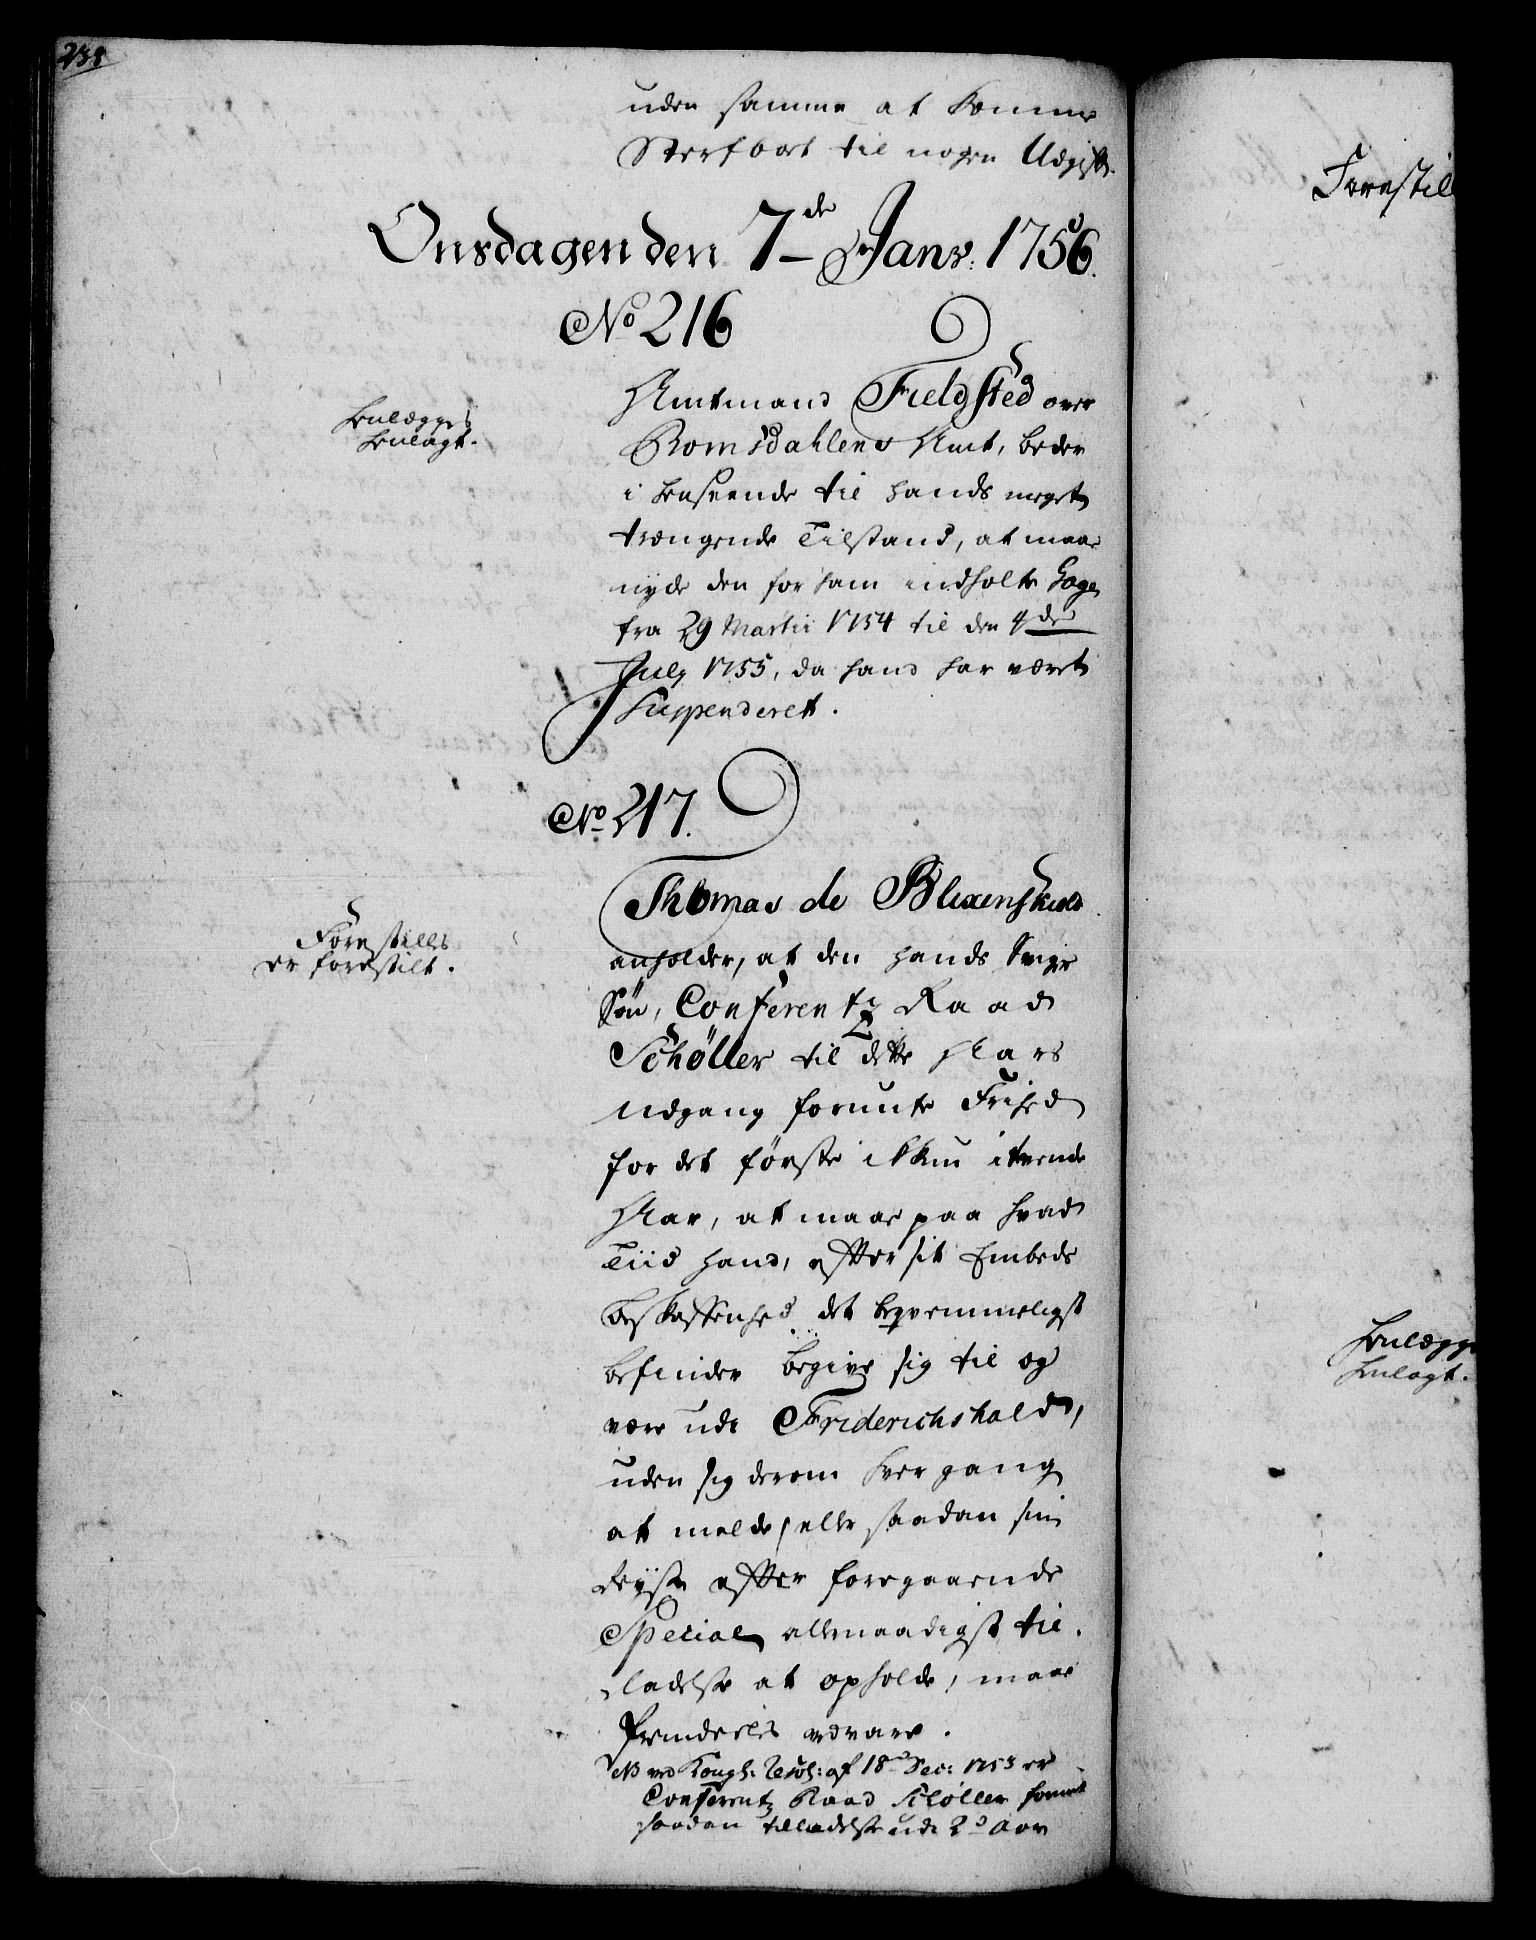 238
uden samme at komme
Sterfboet til nogen Udgift.
Onsdagen den 7de Janv: 1756.
No 216
Henlægges
henlagt.
Amtmand Fieldsted over
Romsdahlens Amt, beder
i henseende til hands meget
trængende Tilstand, at maae
nyde den for ham indholte Gage
fra 29 Martii 1754 til den 4de
July 1755, da hand har været
Suspenderet.
No 217.
Forestilles
er forestilt.
Thomas de Blixenskiold
anholder, at den hands Svige
Søn, Conferentz Raad
Schøller til dette Aars
Udgang forunte Frihed
for det første ikkun i tvende
Aar, at maae paa hvad
Tiid hand, efter sit Embeds
Beskaffenhed det beqvemmeligst
befinder begive sig til og
være udi Friderichshald,
uden sig derom hver gang
at melde, eller saadan sin
Reyse efter foregaaende
Special allernaadigst til-
ladelse at opholde, maae
fremdeeles vedvare.
NB ved Kongl: Resol: af 18de Dec: 1753 er
Conferentz Raad Schøller forundt
saadan tilladelse udi 2de Aar
Forestil
Henlægge
henlagt.